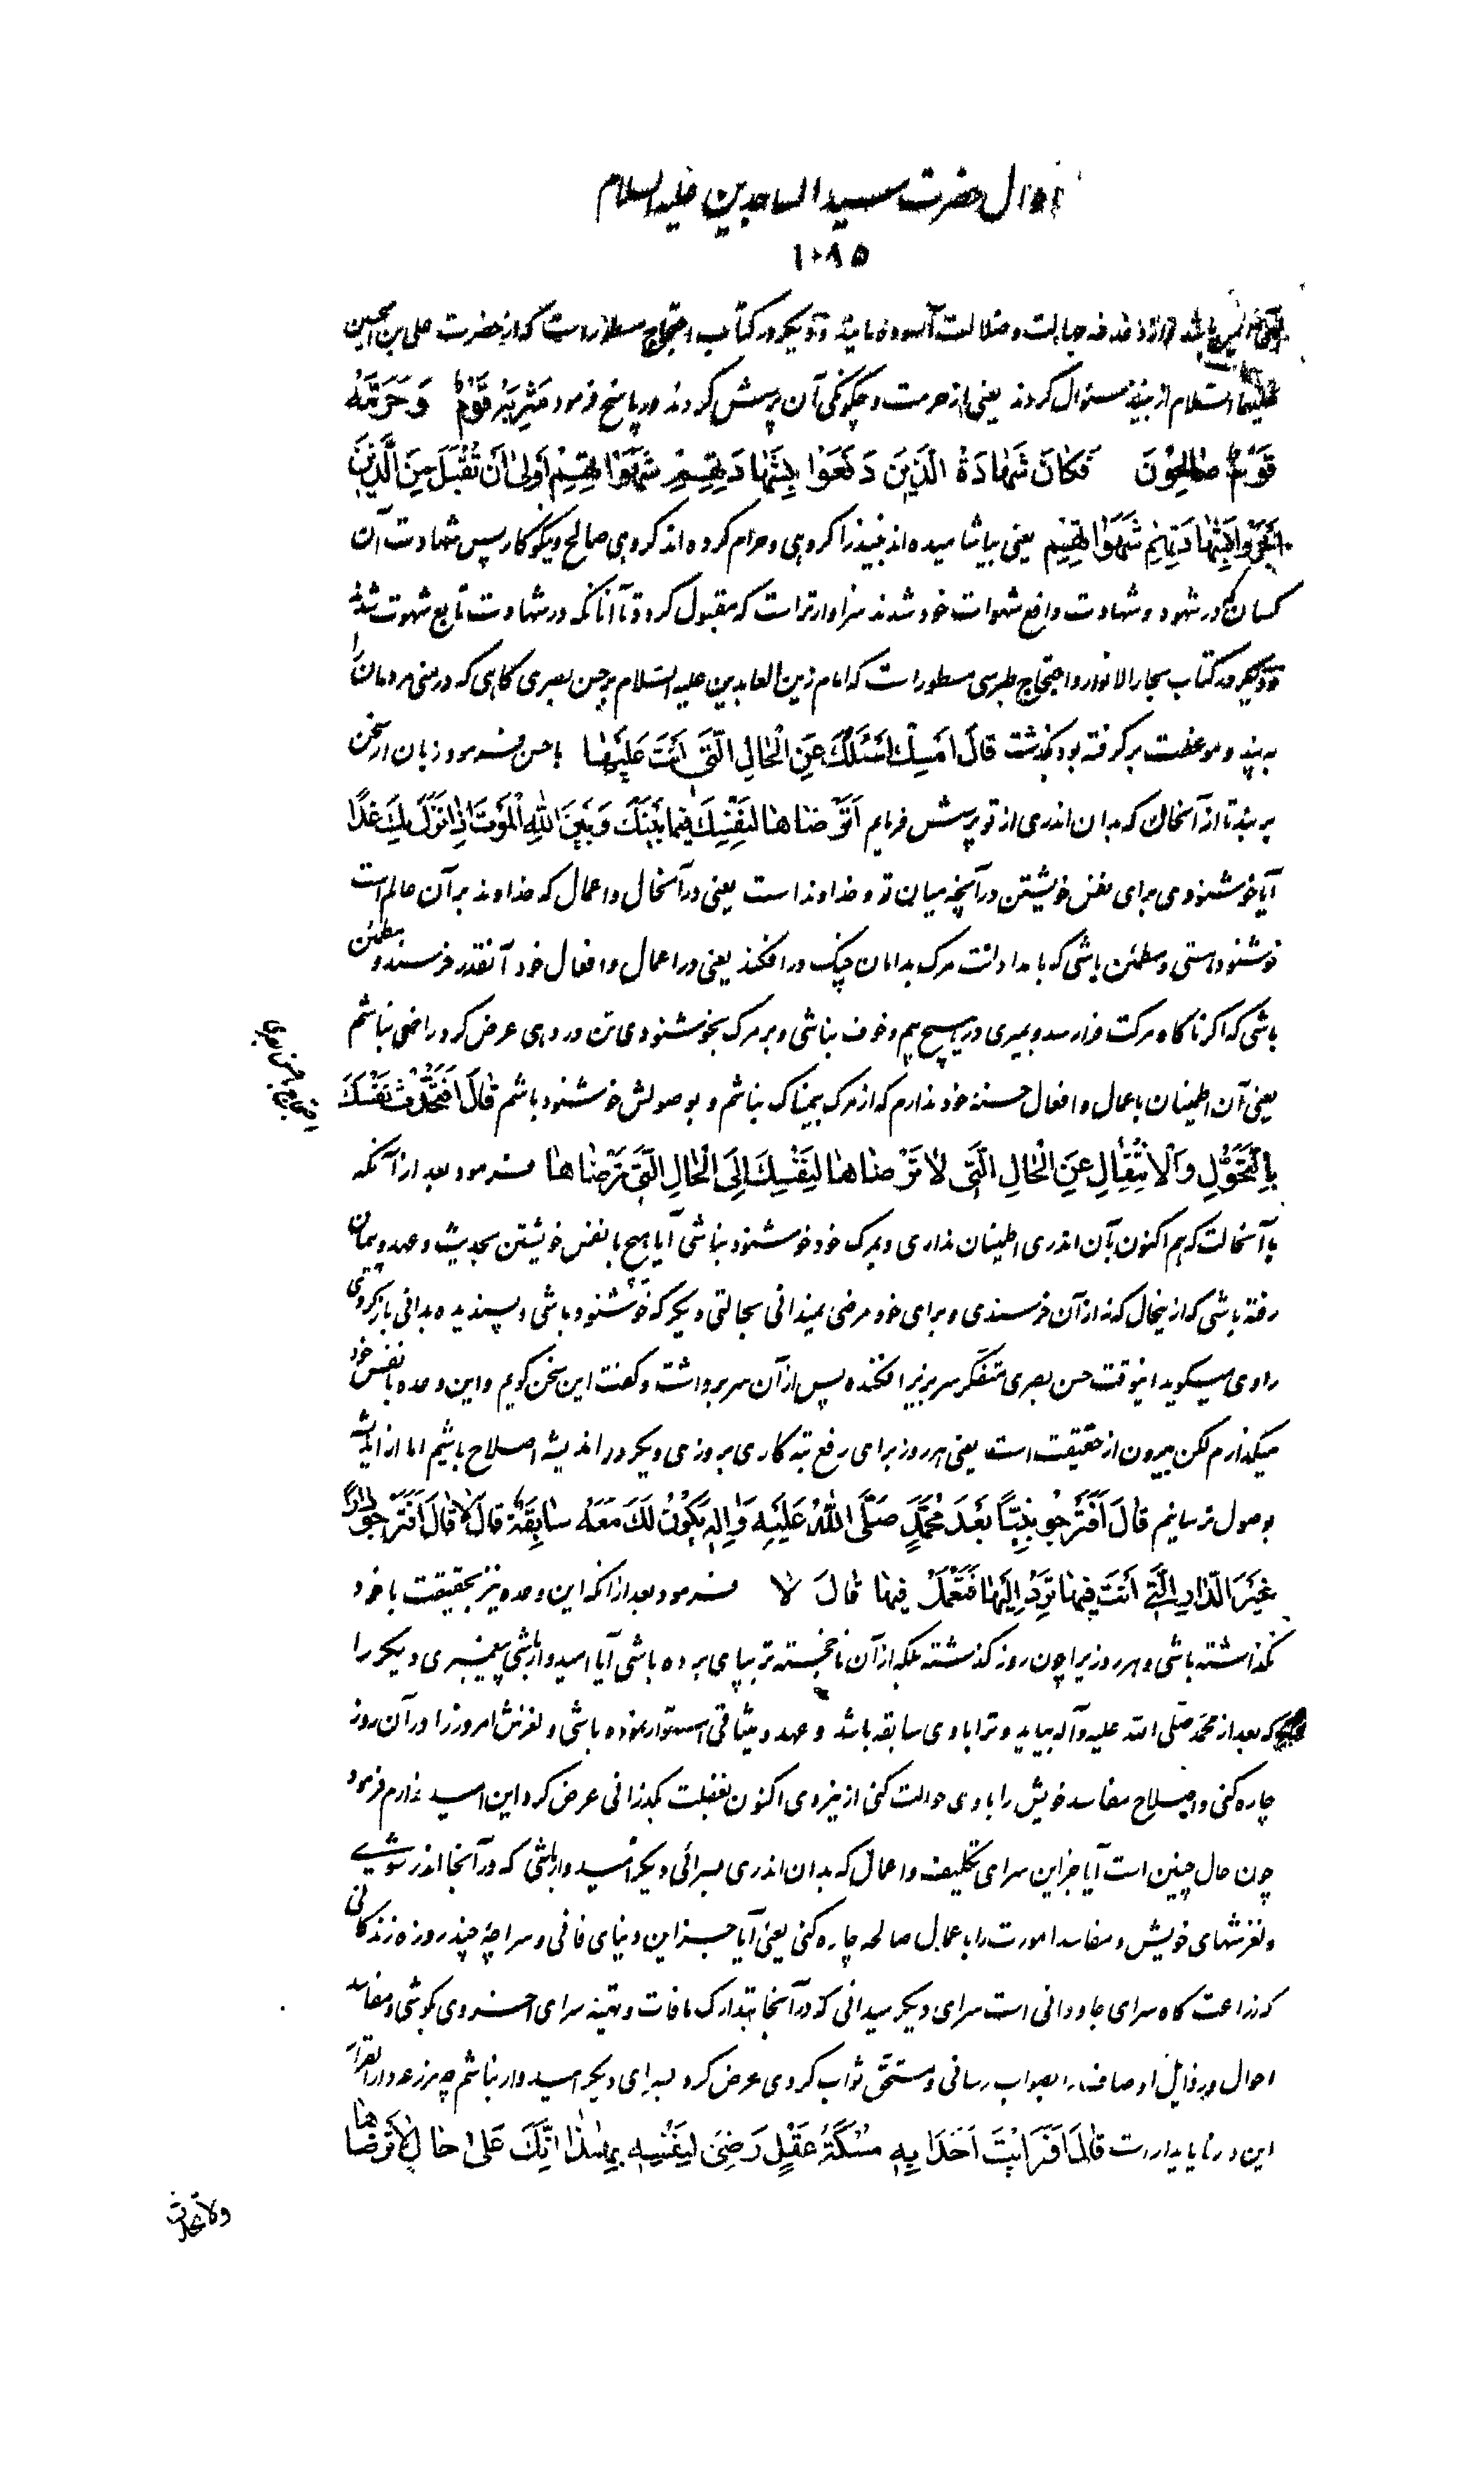 احوال حضرت سید الساجدین علیه السلام
۱۰۸۵
باشد از دغدغه جهالت و ضلالت آسوده مانید و دیگر در کتاب احتجاج مسطور است که از حضرت علی بن الحسین
علیهما السلام از نبیذ سئوال کردند یعنی از حرمت و چگونگی آن پرسش کردند در پاسخ فرمود شَرِبَهُ قَوْمٌ وَ حَرَّمَهُ
قَوْمٌ صٰالِحُونَ فَكٰانَ شَهٰادَةُ الَّذِينَ دَفَعُوا بِشَهٰادَتِهِمْ شَهَوٰاتِهِمْ اَولىٰ اَنْ تُقْبَلَ مِنَ الَّذِينَ
جَرُّوا بِشَهٰادَتِهِمْ شَهَوٰاتِهِمْ یعنی بیاشامیده اند نبیذ را گروهی و حرام کرده اند گروهی صالح و نیکوکار پس شهادت آن
کسان که در شهود و شهادت دافع شهوات خود شدند سزاوارتر است که مقبول گردد تا آنانکه در شهادت تابع شهوت شدند
و دیگر در کتاب بحار الانوار و احتجاج طبرسی مسطور است که امام زین العابدین علیه السلام بر حسن بصری گاهی که در منی مردمان را
به پند و موعظت برگرفته بود بگذشت قٰالَ اَمْسِكْ اَسْئَلُكَ عَنِ الْحٰالِ الَّتِي اَنْتَ عَلَيْهٰا با حسن فرمود زبان از سخن
بربند تا از آنحال که بدان اندری از تو پرسش فرمایم اَتَرْضٰاهٰا لِنَفْسِكَ فِيمٰا بَيْنَكَ وَ بَيْنَ اللهِ الْمَوْتَ اِذٰا نَزَلَ بِكَ غَدًا
آیا خوشنودی برای نفس خویشتن در آنچه میان تو و خداوند است یعنی در آنحال و اعمال که خداوند بر آن عالم است
خوشنود هستی و مطمئن باشی که بامدادانت مرگ بدامان چنگ در افکند یعنی در اعمال و افعال خود آنقدر خرسند و مطمئن
باشی که اگر ناگاه مرگت فرا رسد و بمیری در هیچ بیم و خوف نباشی و بر مرگ بخوشنودی تن در دهی عرض کرد راضی نباشم
یعنی آن اطمینان باعمال و افعال حسنه خود ندارم که از مرگ بیمناک نباشم و بوصولش خوشنود باشم قٰالَ اَفَتُحَدِّثُ نَفْسَكَ
بِالتَّحَوُّلِ وَ الْاِنْتِقٰالِ عَنِ الْحٰالِ الَّتِي لٰا تَرْضٰاهٰا لِنَفْسِكَ اِلَى الْحٰالِ الَّتِي تَرْضٰاهٰا فرمود بعد از آنکه
با آنحالت که هم اکنون بآن اندری اطمینان نداری و بمرگ خود خوشنود نباشی آیا هیچ با نفس خویشتن بحدیث و عهد و پیمان
رفته باشی که از ینحال که نه از آن خرسندی و برای خود مرضی نمیدانی بحالتی دیگر که خوشنود باشی و پسندیده بدانی باز گردی
راوی میگوید اینوقت حسن بصری متفکر سر بزیر افکنده پس از آن سر برداشت و گفت این سخن گویم و این وعده با نفس خود
میگذارم لکن بیرون از حقیقت است یعنی هر روز برای رفع تبه کاری بروزی دیگر در اندیشه اصلاح باشیم اما از اندیشه
بوصول نرسانیم قٰالَ اَفَتَرْجُو نَبِيًّا بَعْدَ مُحَمَّدٍ صَلَّى اللهُ عَلَيْهِ وَ اٰلِهِ يَكُونُ لَكَ مَعَهُ سٰابِقَةٌ قٰالَ لٰا قٰالَ اَفَتَرْجُو دٰارًا
غَيْرَ الدّٰارِ الَّتِي اَنْتَ فِيهٰا تُرَدُّ اِلَيْهٰا فَتَعْمَلُ فِيهٰا قٰالَ لٰا فرمود بعد از آنکه این وعده نیز بحقیقت با خود
نگذاشته باشی و هر روز را چون روز گذشته بلکه از آن ناخجسته تر بپای برده باشی آیا امیدوار باشی پیغمبری دیگر را
که بعد از محمد صلی الله علیه و آله بیاید و ترا با وی سابقه باشد و عهد و میثاقی استوار نموده باشی و لغزش امروز را در آن روز
چاره کنی و اصلاح مفاسد خویش را با وی حوالت کنی ازینروی اکنون بغفلت بگذرانی عرض کرد این امید ندارم فرمود
چون حال چنین است آیا جز این سرای تکلیف و اعمال که بدان اندری بسرائی دیگر امیدوار باشی که در آنجا اندر شوی
و لغزشهای خویش و مفاسد امورت را باعمال صالحه چاره کنی یعنی آیا جز این دنیای فانی و سراچهٔ چند روزه زندگانی
که زراعت گاه سرای جاودانی است سرای دیگر میدانی که در آنجا بتدارک مافات و تهیه سرای اخروی بکوشی و مفاسد
احوال و رذایل اوصاف را بصواب رسانی و مستحق ثواب گردی عرض کرد بسرای دیگر امیدوار نباشم چه مزرعه دار القرار
این دنیا ناپایدار است قٰالَ اَفَرَاَيْتَ اَحَدًا بِهِ مُسْكَةُ عَقْلٍ رَضِيَ لِنَفْسِهِ بِهٰذٰا اِنَّكَ عَلىٰ حٰالٍ لٰا تَرْضٰاهٰا
ولا تحدث